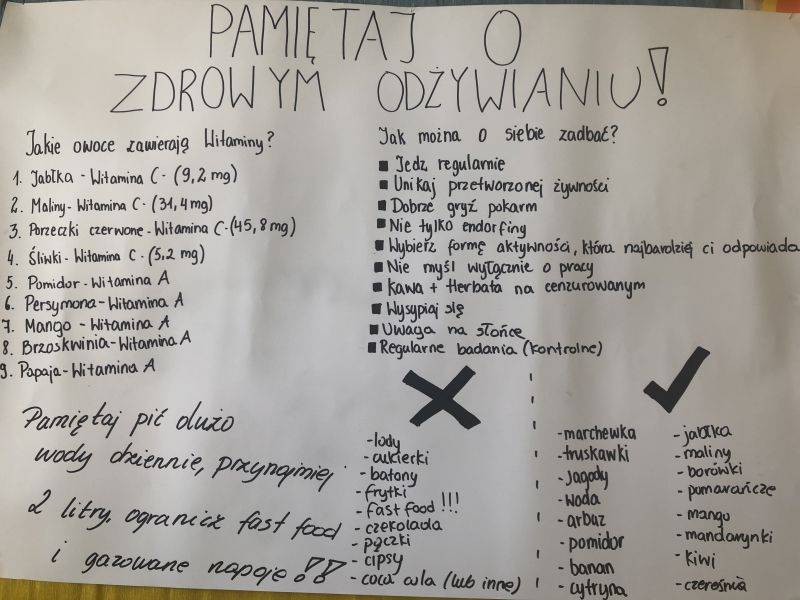 PAMIĘTAJ O
ZDROWYM ODŻYWIANIU!
Jakie owoce zawierają Witaminy?
1. Jabłka - Witamina C - (9,2 mg)
2. Maliny - Witamina C - (31,4 mg)
3. Porzeczki czerwone - Witamina C - (45,8 mg)
4. Śliwki - Witamina C - (5,2 mg)
5. Pomidor - Witamina A
6. Persymona - Witamina A
7. Mango - Witamina A
8. Brzoskwinia - Witamina A
9. Papaja - Witamina A
Jak można o siebie zadbać?
■ Jedz regularnie
■ Unikaj przetworzonej żywności
■ Dobrze gryź pokarm
■ Nie tylko endorfiny
■ Wybierz formę aktywności, która najbardziej ci odpowiada
■ Nie myśl wyłącznie o pracy
■ Kawa + Herbata na cenzurowanym
■ Wysypiaj się
■ Uwaga na słońce
■ Regularne badania (kontrolne)
Pamiętaj pić dużo
wody dziennie, przynajmniej
2 litry, ogranicz fast food
i gazowane napoje!!
- lody
- cukierki
- batony
- frytki
- fast food!!!
- czekolada
- pączki
- cipsy
- coca cola (lub inne)
- marchewka
- truskawki
- jagody
- woda
- arbuz
- pomidor
- banan
- cytryna
- jabłka
- maliny
- borówki
- pomarańcze
- mango
- mandarynki
- kiwi
- czereśnia